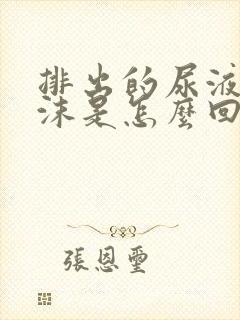 排出的尿液
沫是怎麼回
張恩璽